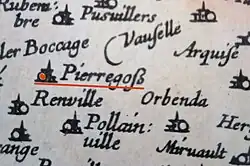 Rubem:
bre
Puvillers
ler Boccage
Vauselle
Arquise
Pierregoß
Renville
Orbenda
Her
Pollain:
ville
ange
Miruault